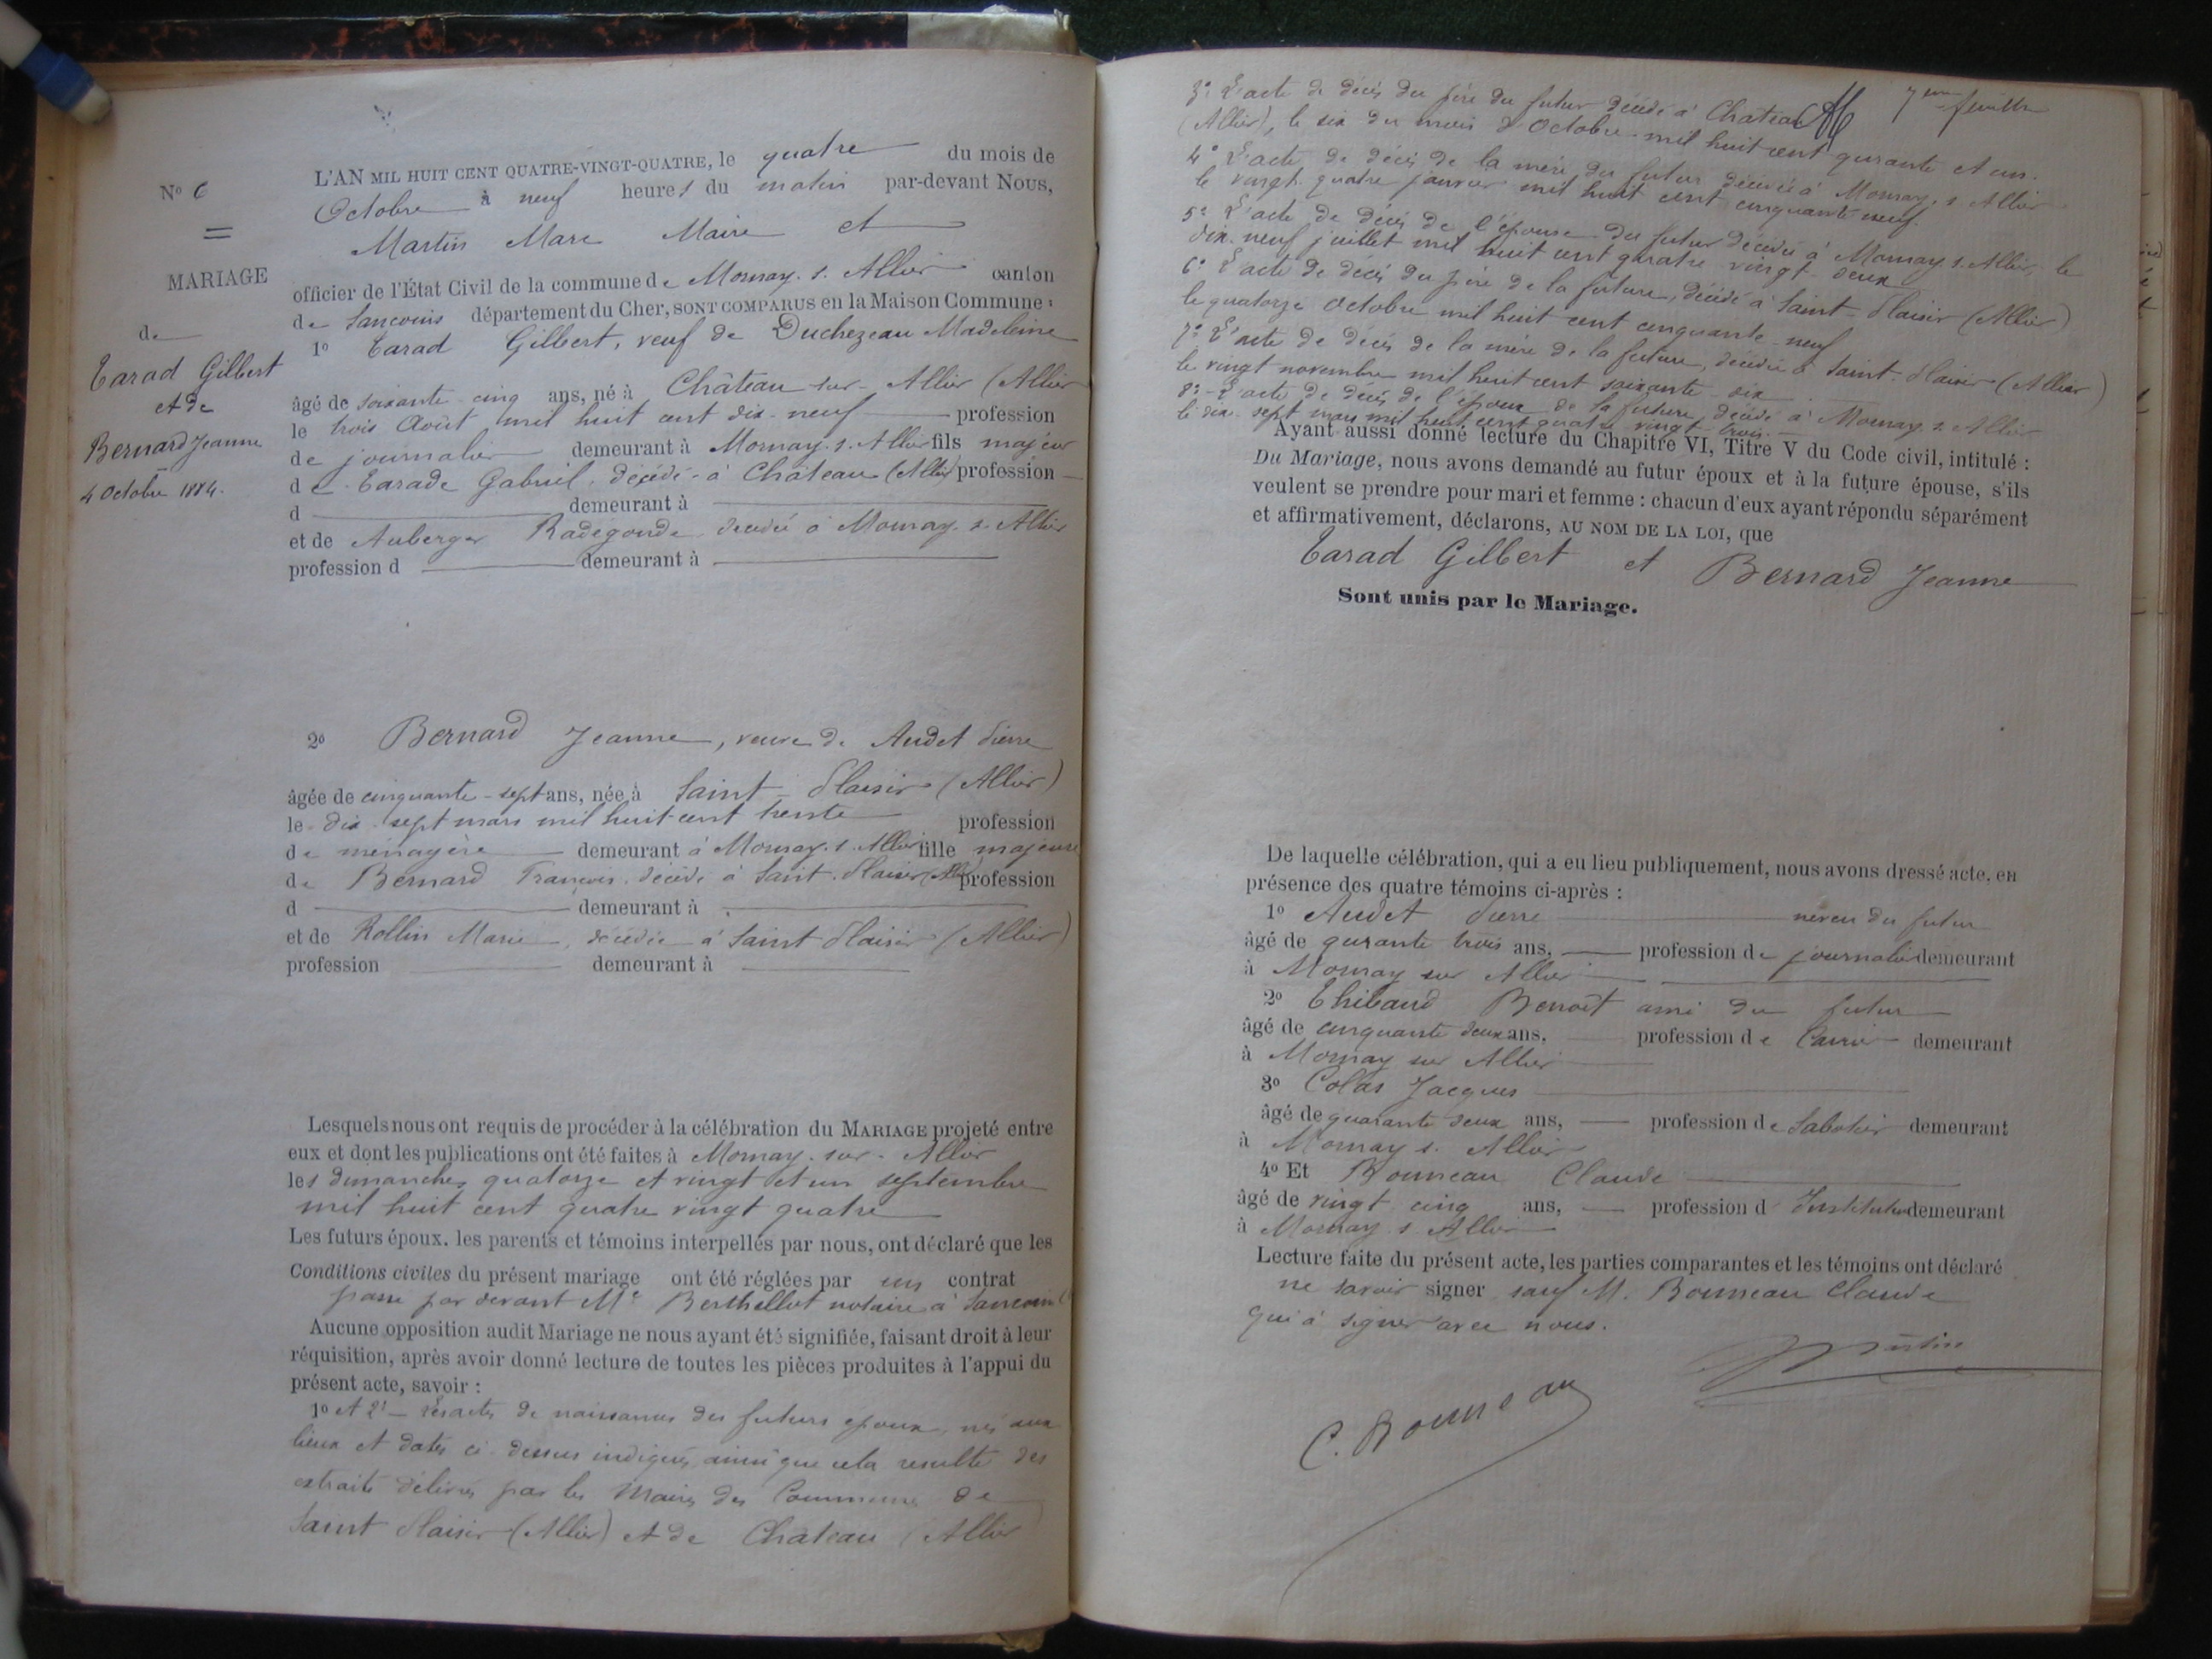 N° 6
=
MARIAGE
de
Tarad Gilbert
et de
Bernard Jeanne
4 Octobre 1884.
L'AN MIL HUIT CENT QUATRE-VINGT-QUATRE, le quatre du mois de
Octobre à neuf heures du matin par-devant Nous,
Martin Marc Maire et
officier de l'État Civil de la commune de Mornay. s. Allier canton
de Sancoins département du Cher, SONT COMPARUS en la Maison Commune :
1° Tarad Gilbert, veuf de Duchezeau Madeleine
âgé de soixante-cinq ans, né à Château-sur-Allier (Allier
le trois Août mil huit cent dix-neuf profession
de journalier demeurant à Mornay. s. Allier fils majeur
de Tarade Gabriel, décédé à Château (Allier) profession
d demeurant à
et de Auberger Radegonde décédée à Mornay. s. Allier
profession d demeurant à
2° Bernard Jeanne, veuve de Audet Pierre
âgée de cinquante-sept ans, née à Saint-Plaisir (Allier)
le dix-sept mars mil huit cent trente profession
de ménagère demeurant à Mornay. s. Allier fille majeure
de Bernard François décédé à Saint-Plaisir (Allier) profession
d demeurant à
et de Rollin Marie, décédée à Saint Plaisir (Allier)
profession demeurant à
Lesquels nous ont requis de procéder à la célébration du MARIAGE projeté entre
eux et dont les publications ont été faites à Mornay-sur-Allier
les dimanches quatorze et vingt et un septembre
mil huit cent quatre vingt quatre
Les futurs époux, les parents et témoins interpellés par nous, ont déclaré que les
Conditions civiles du présent mariage ont été réglées par un contrat
passé par devant Me Berthellot notaire à Sancoins
Aucune opposition audit Mariage ne nous ayant été signifiée, faisant droit à leur
réquisition, après avoir donné lecture de toutes les pièces produites à l'appui du
présent acte, savoir :
1° et 2° Les actes de naissances des futurs époux, nés aux
lieux et dates ci-dessus indiqués, ainsi que cela resulte des
extraits délivrés par les Maires des Communes de
Saint Plaisir (Allier) et de Château (Allier
7eme feuille
3° L'acte de décès du père du futur décédé à Château
(Allier), le six du mois d'Octobre mil huit cent qurante et un.
4° L'acte de décès de la mère du futur décédée à Mornay. s. Allier
le vingt-quatre janvier mil huit cent cinquante neuf.
5° L'acte de décès de l'épouse du futur décédée à Mornay s. Allier, le
dix-neuf juillet mil huit cent quatre vingt-deux
6° L'acte de décès du père de la future, décédé à Saint-Plaisir (Allier)
le quatorze Octobre mil huit cent cinquante-neuf
7° L'acte de décès de la mère de la future, décédée à Saint-Plaisir (Allier)
le vingt novembre mil huit cent soixante-dix
8° L'acte de décès de l'époux de la future, décédé à Mornay s. Allier
le dix-sept mars mil huit cent quatre vingt trois.
Ayant aussi donné lecture du Chapitre VI, Titre V du Code civil, intitulé :
Du Mariage, nous avons demandé au futur époux et à la future épouse, s'ils
veulent se prendre pour mari et femme : chacun d'eux ayant répondu séparément
et affirmativement, déclarons, AU NOM DE LA LOI, que
Tarad Gilbert et Bernard Jeanne
Sont unis par le Mariage.
De laquelle célébration, qui a eu lieu publiquement, nous avons dressé acte, en
présence des quatre témoins ci-après :
1° Audet Pierre neveu du futur
âgé de qurante trois ans, profession de journalier demeurant
à Mornay sur Allier
2° Thibaud Benoît ami du futur
âgé de cinquante deux ans, profession de demeurant
à Mornay sur Allier
3° Colas Jacques
âgé de quarante deux ans, profession de Sabotier demeurant
à Mornay s. Allier
4° Et Bonneau Claude
âgé de vingt cinq ans, profession d'Instituteur demeurant
à Mornay s. Allier
Lecture faite du présent acte, les parties comparantes et les témoins ont déclaré
ne savoir signer sauf M. Bonneau Claude
qui à signer avec nous.
Martin
C. Bonneau